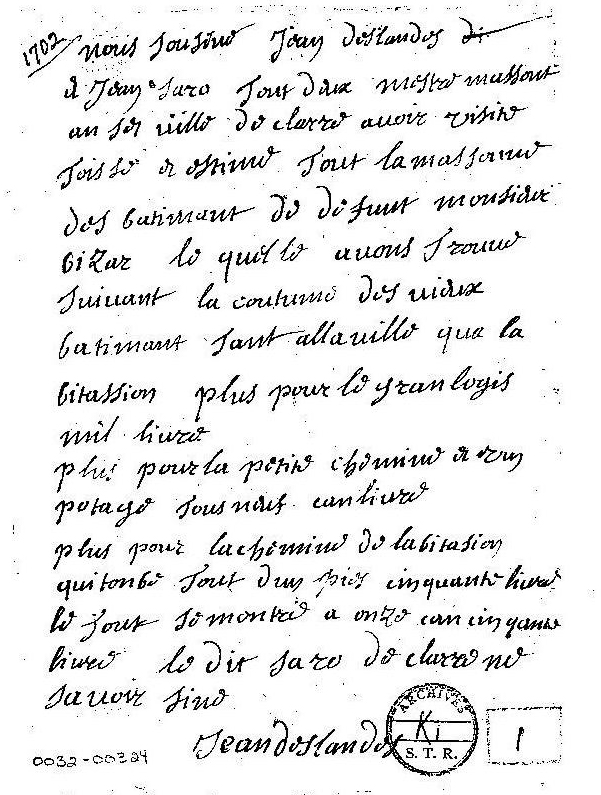 1702
nous sousiné Jean deslandes di
et Jean saro tout deux mestre massont
an set ville declarre avoir visite
toissé et estimé tout la massonne
des batimant de defunt monsieur
bizar le quelle avons trouvé
suivant la coutume des vieux
batimant tant allaville que la
bitassion plus pour le gran logis
mil livre
plus pour la petite cheminé et
potage tous neuf can livre
plus pour lacheminé de labitasion
quitonbe tout dun pies cinquante livre
le tout se montre a onze can cinqante
livre le dit saro declarre ne
savoir siné
Jean deslandes
ARCHIVES
S.T.R.
1
0032-00324